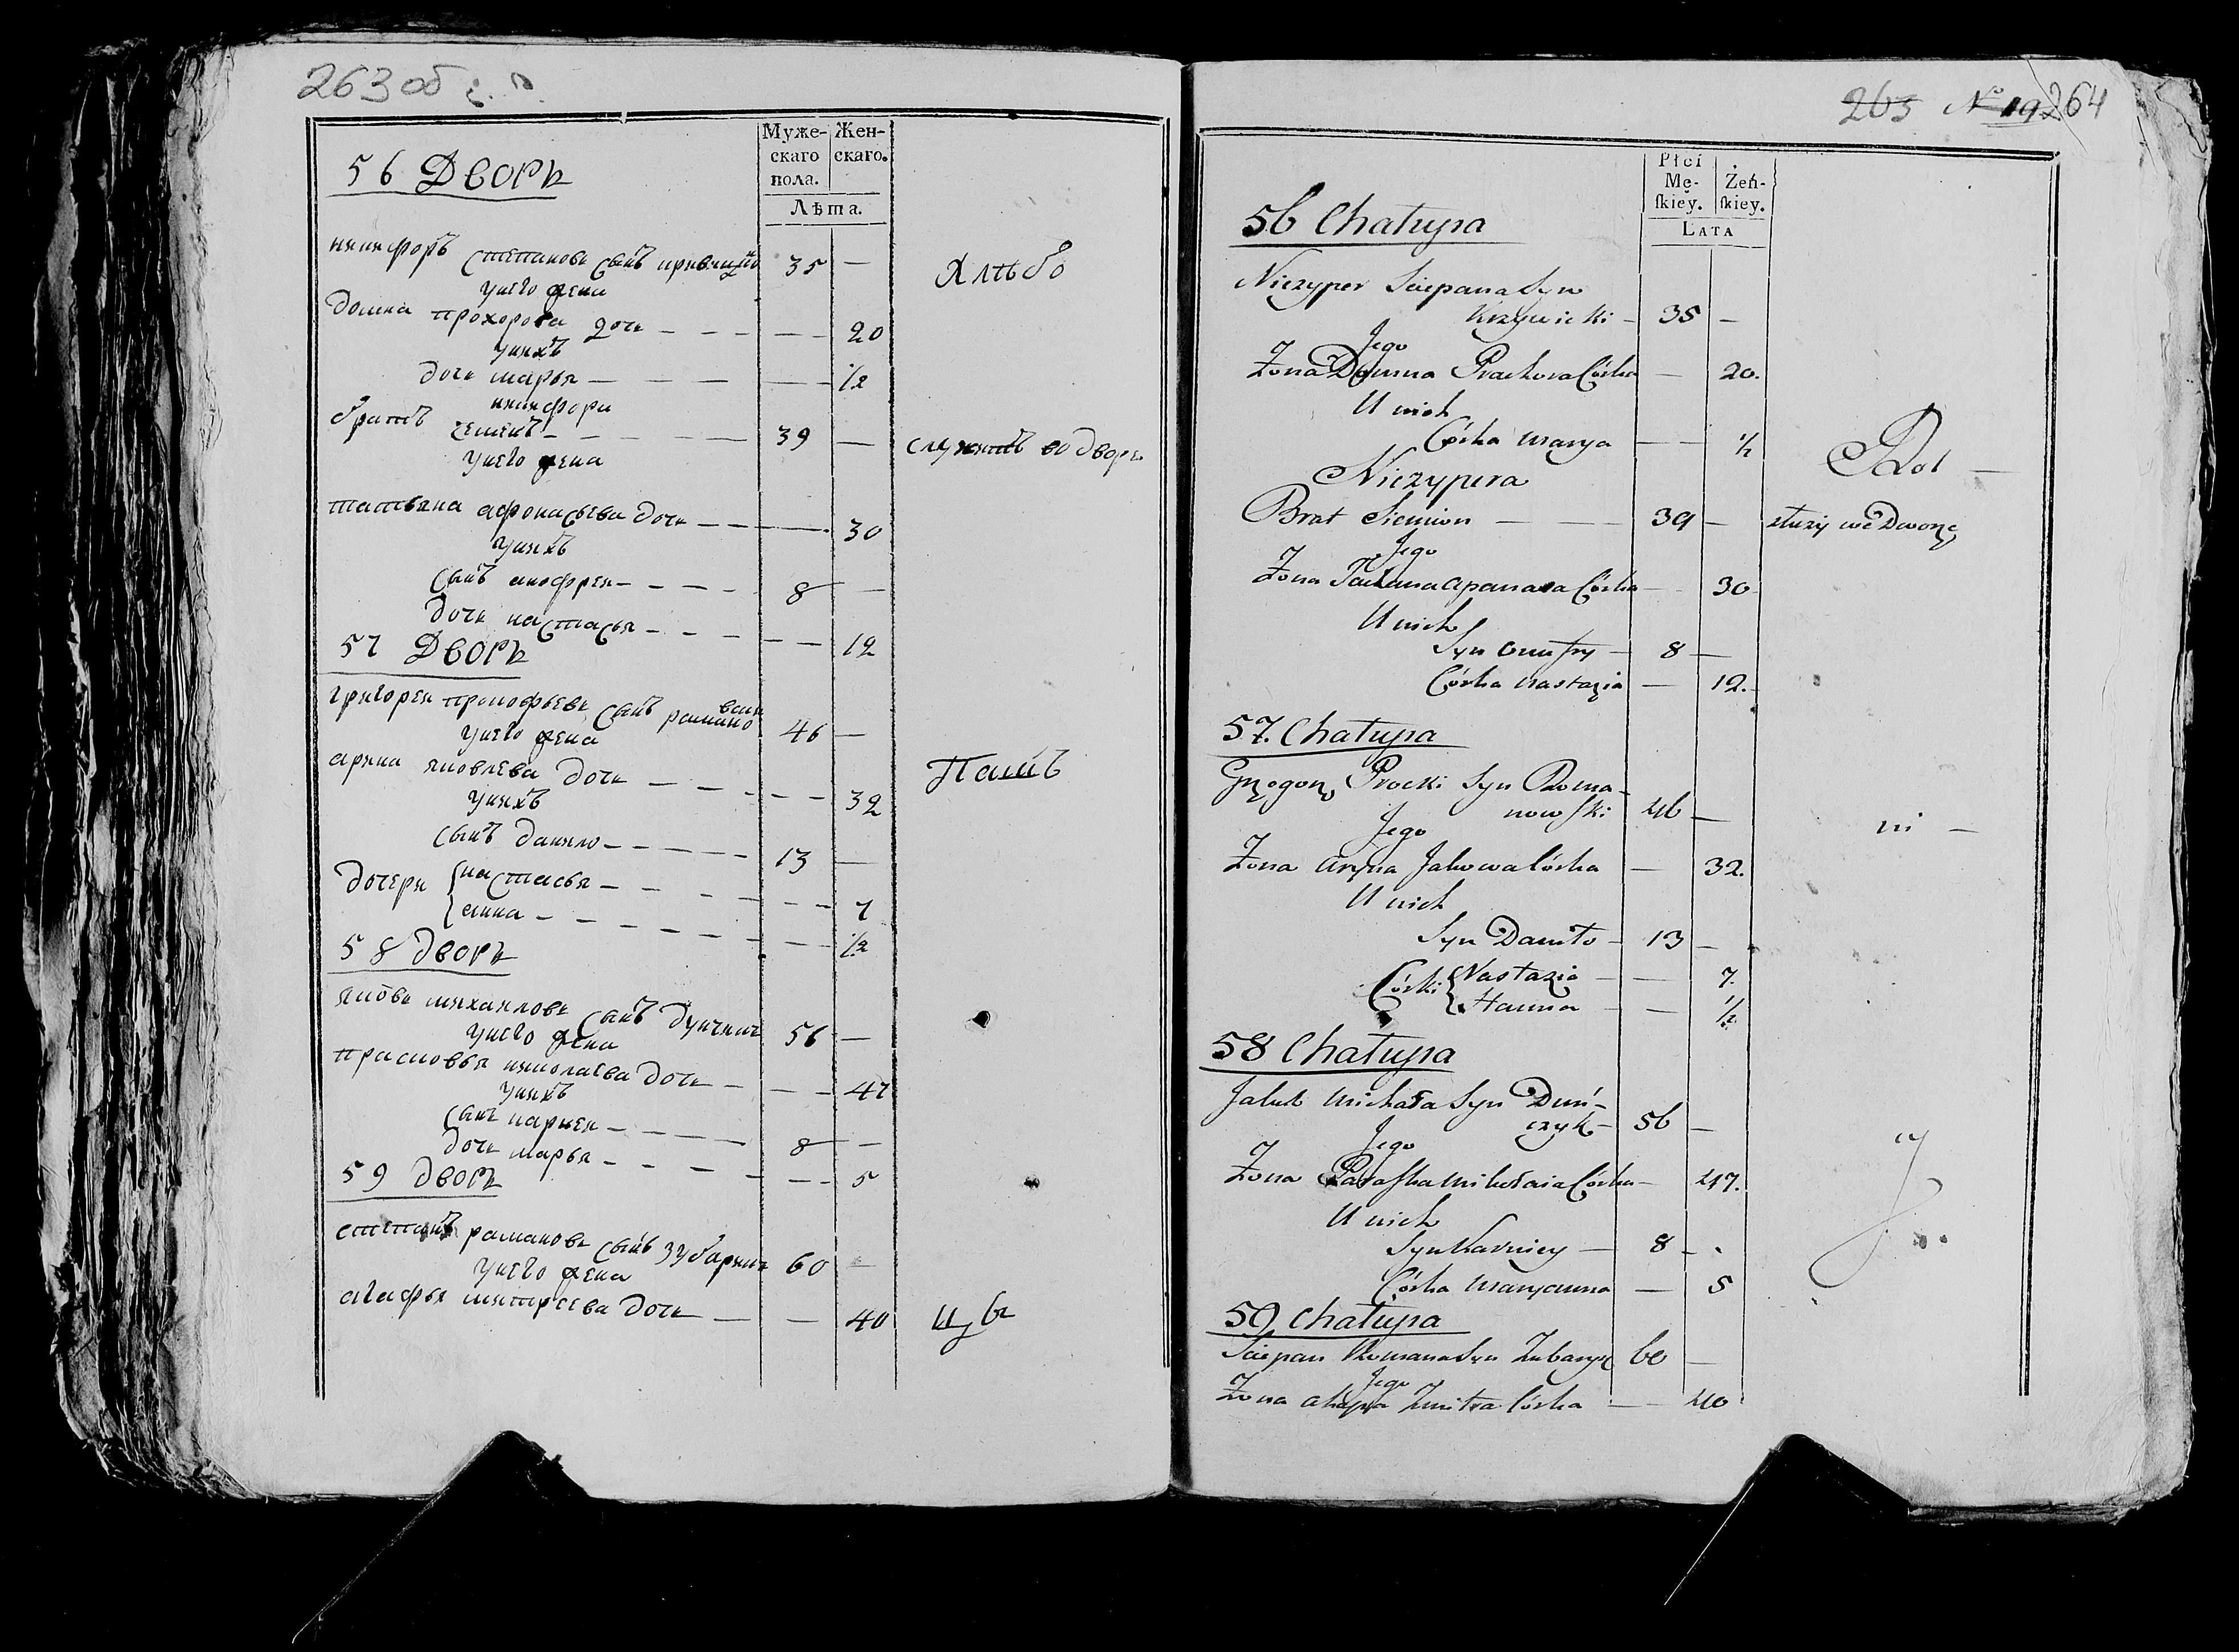 263 об
Муже-
скаго
пола.
Жен-
скаго.
Лѣта.
56 Дворъ
никифоръ степановъ сынъ кривицкий 35 —
у него жена
домна прохорова дочь — — — — 20
у нихъ
дочь марья — — — — 1/2
никифора
братъ семенъ — — — — 39 —
служитъ во дворе
у него жена
татьяна афонасьева дочь — — — 30
у нихъ
сынъ анофреи — — — 8 —
дочь настасья — — — — 12
57 Дворъ
григореи прокофьевъ сынъ рамановски 46 —
у него жена
арина яковлева дочь — — — — 32
у нихъ
сынъ данило — — — — 13 —
дочери настасья — — — — 7
анна — — — — — 1/2
58 дворъ
яковъ михаиловъ сынъ дунчикъ 56 —
у него жена
прасковья николаева дочь — — — 47
у нихъ
сынъ карнеи — — — — 8 —
дочь марья — — — — 5
59 дворъ
степанъ рамановъ сынъ зубарикъ 60 —
у него жена
агафья митреева дочь — — 40
Хлѣбо
Пашъ
цы
263 № 19 264
Płci
Mę-
ſkiey.
Żeń-
ſkiey.
Lata
56 Chałupa
Niczyper Sciepana Syn
Krzywicki — 35 —
Jego
Zona Domna Prachora Córka — 20.
U nich
Córka Marya — — 1/2
Niczypera
Brat Siemion — — 39 — służy we Dworze
Jego
Zona Taciana Apanasa Córka — 30
U nich
Syn Onufry — 8 —
Córka Nastazia — 12.
57. Chałupa
Grzegorz Procki Syn Roma-
nowſki 46 —
Jego
Zona Aryna Jakowa Córka — 32.
U nich
Syn Daniło — 13 —
Córki Nastazia — — 7.
Hanna — — 1/2
58 Chałupa
Jakub Michała Syn Duń-
czyk — 56 —
Jego
Zona Paraſka Mikołaia Córka — 47.
U nich
Syn Karniey — 8 —
Córka Maryanna — 5
59 Chałupa
Sciepan Romana Syn Zubaryk 60 —
Jego
Zona Ahapa Zmitra Córka — — 40
Rol —
ni —
cy